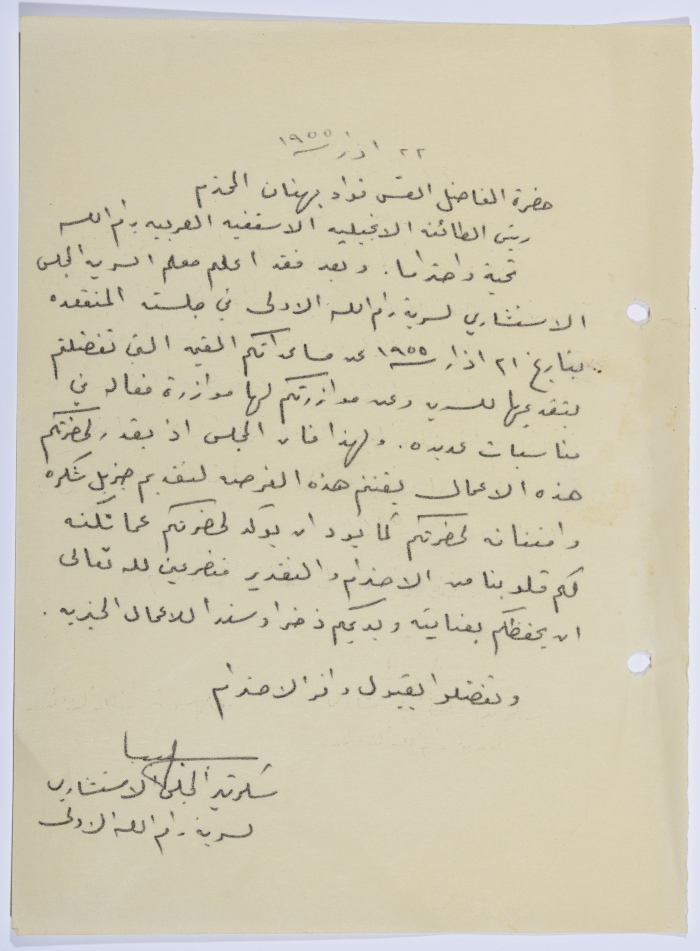 ٢٢ اذار ١٩٥٥
حضرة الفاضل القس فؤاد بهنان المحترم
رئيس الطائفه الانجيليه الاسقفيه العربيه برام الله
تحية واحتراما. وبعد فقد اعلم معلم السريه المجلس
الاستشاري لسرية رام الله الاولى في جلسته المنعقده
بتاريخ ٢١ اذار ١٩٥٥ عن مساعداتكم القيمه التي تفضلتم
بتقديمها للسريه وعن موازرتكم لها موازرة فعاله في
مناسبات عديده. ولهذا فان المجلس اذ يقدر لحضرتكم
هذه الاعمال يغتنم هذه الفرصه لتقديم جزيل شكره
وامتنانه لحضرتكم كما يود ان يؤكد لحضرتكم عما تكنه
لكم قلوبنا من الاحترام والتقدير متضرعين لله تعالى
ان يحفظكم بعنايته ويديمكم ذخرا وسندا للاعمال الخيريه.
وتفضلوا بقبول وافر الاحترام
سكرتير المجلس الاستشاري
لسرية رام الله الاولى